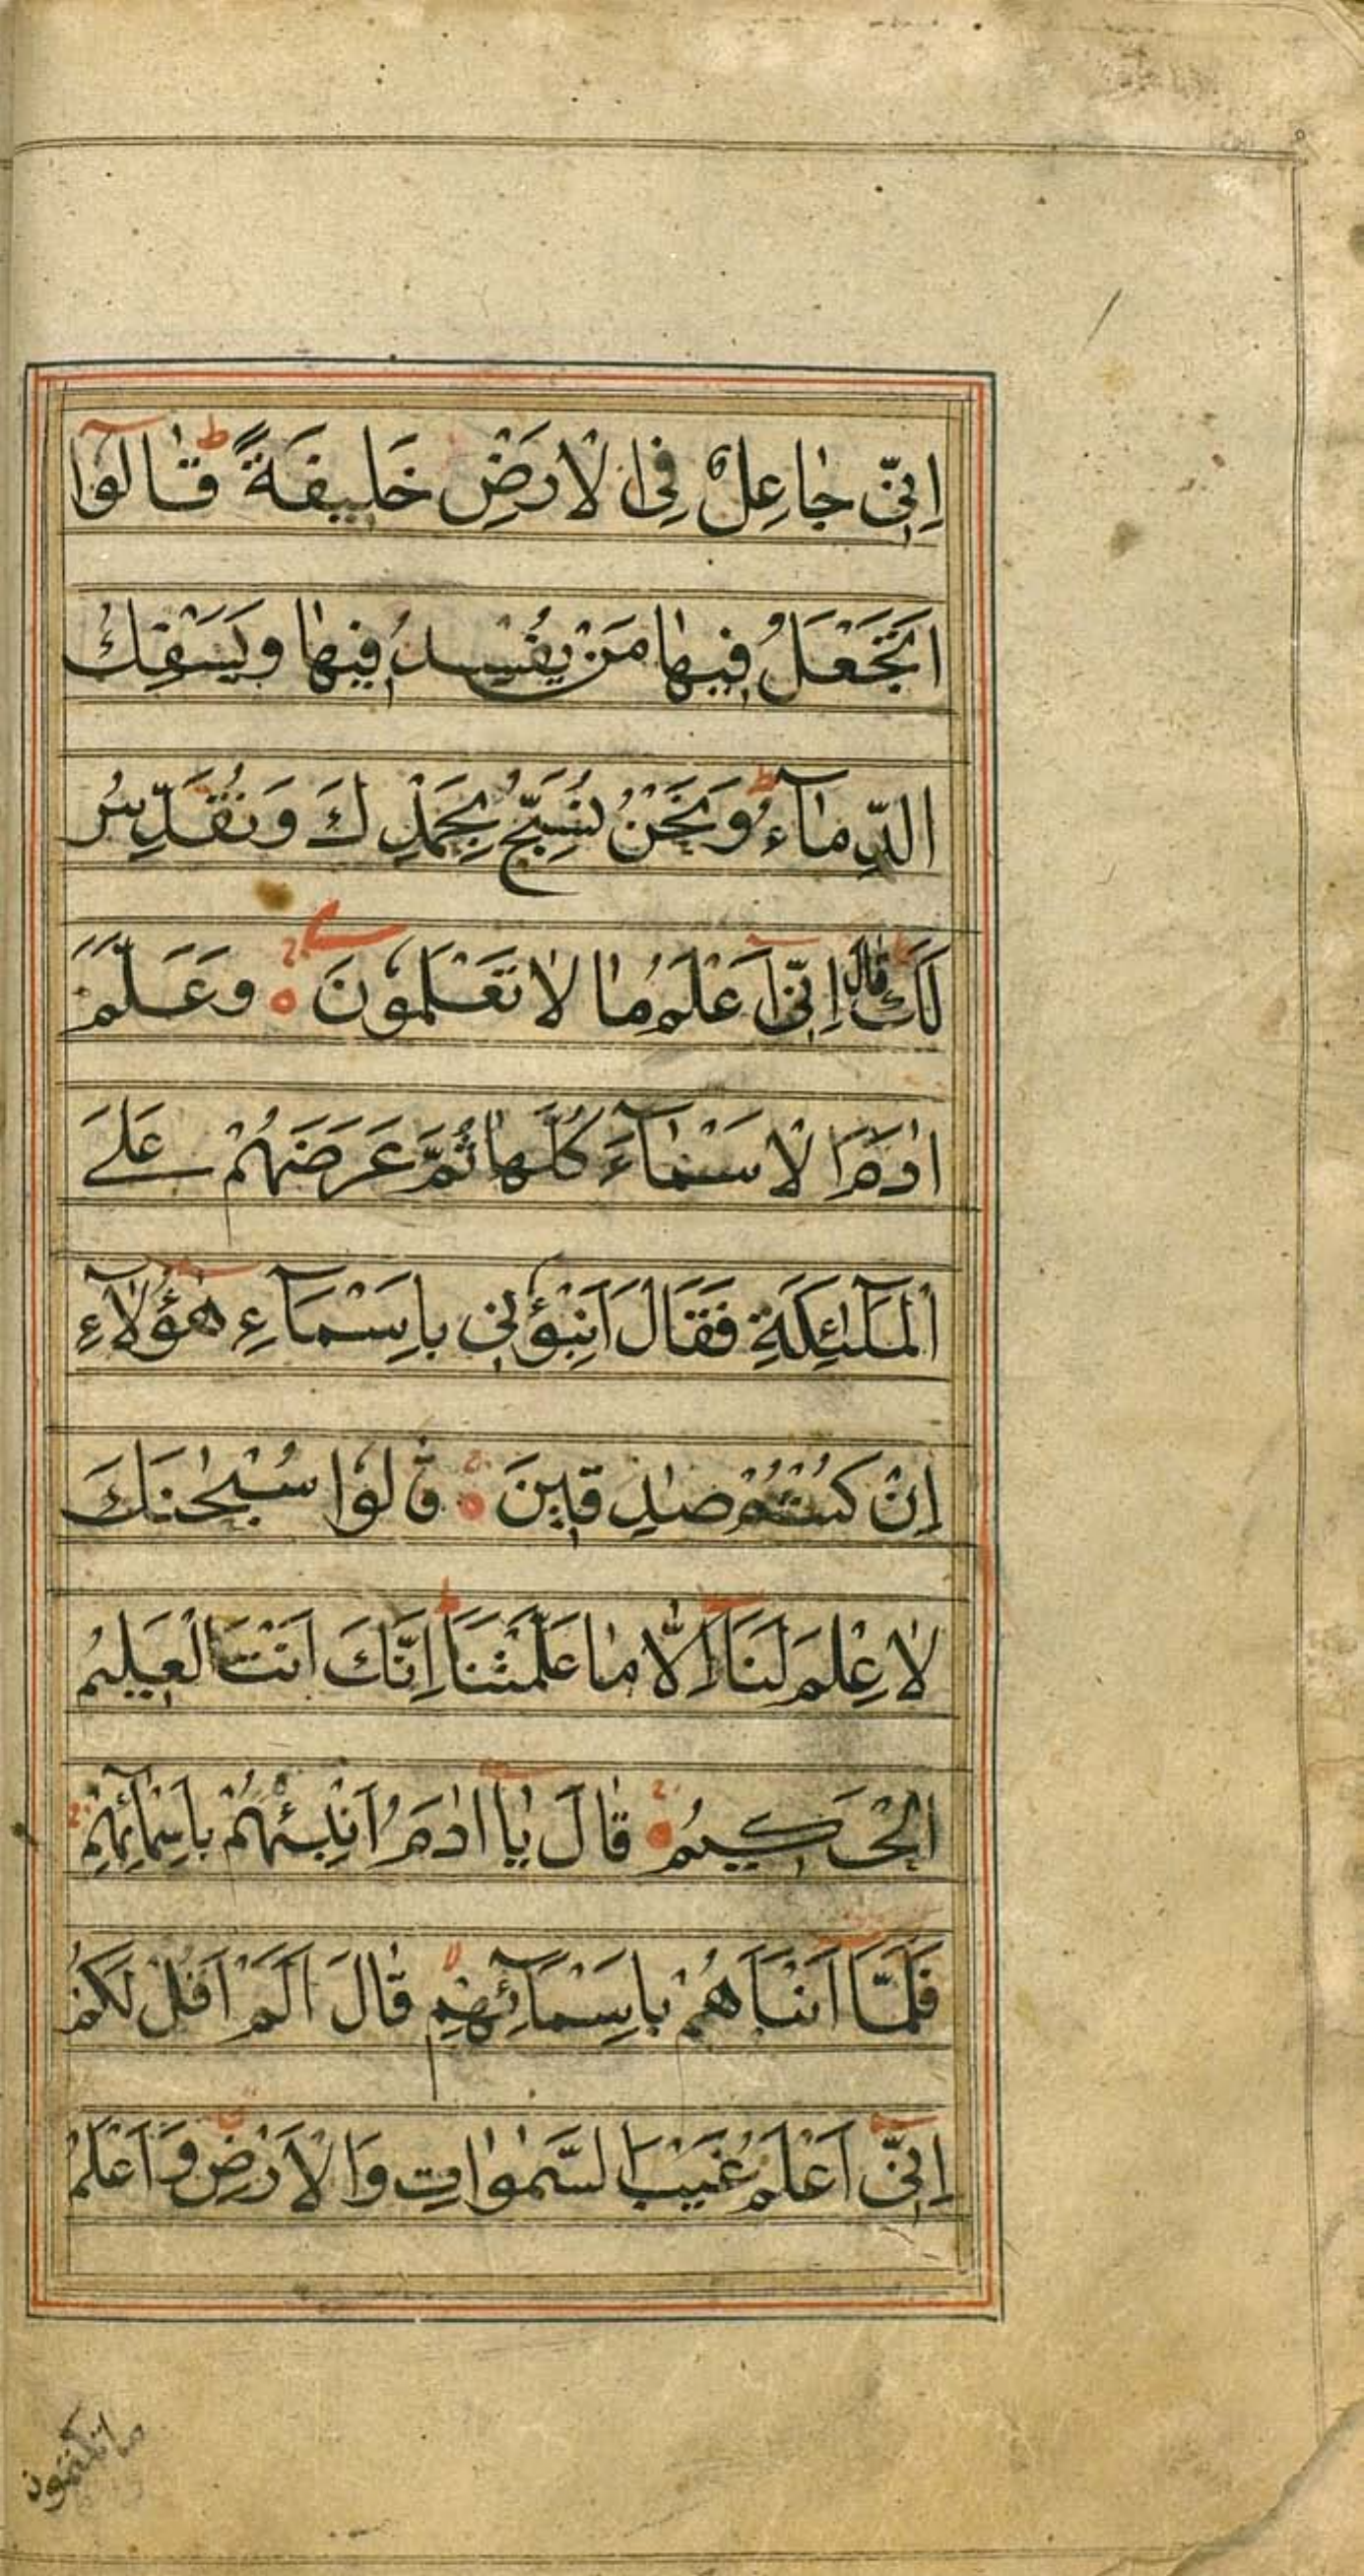 اِنِّي جٰاعِلٌ فِي الْاَرْضِ خَلِيفَةً قٰالُوٓا
اَتَجْعَلُ فِيهٰا مَنْ يُفْسِدُ فِيهٰا وَيَسْفِكُ
الدِّمٰآءَ وَنَحْنُ نُسَبِّحُ بِحَمْدِكَ وَنُقَدِّسُ
لَكَ قٰالَ اِنِّيٓ اَعْلَمُ مٰا لٰا تَعْلَمُونَ وَعَلَّمَ
اٰدَمَ الْاَسْمٰآءَ كُلَّهٰا ثُمَّ عَرَضَهُمْ عَلَى
الْمَلٰٓئِكَةِ فَقَالَ اَنْبِؤُنِي بِاَسْمَآءِ هٰٓؤُلٰٓاءِ
اِنْ كُنْتُمْ صٰدِقِينَ قٰلُوا سُبْحٰنَكَ
لٰا عِلْمَ لَنَآ اِلَّا مٰا عَلَّمْتَنَا اِنَّكَ اَنْتَ الْعَلِيمُ
الْحَكِيمُ قٰالَ يٰٓا اٰدَمُ اَنْبِئْهُمْ بِاَسْمٰآئِهِمْ
فَلَمَّآ اَنْبَاَهُمْ بِاَسْمَآئِهِمْ قٰالَ اَلَمْ اَقُلْ لَكُمْ
اِنِّيٓ اَعْلَمُ غَيْبَ السَّمٰوٰاتِ وَالْاَرْضِ وَاَعْلَمُ
ما تكتمون